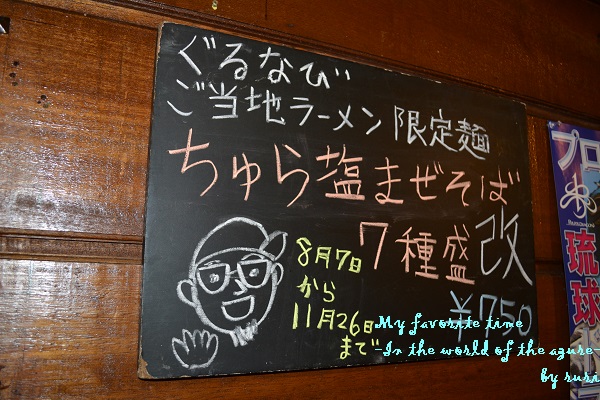 ぐるなび
ご当地ラーメン限定麺
ちゅら塩まぜそば
7種盛改
8月7日
から
11月26日
まで
¥750
プロ
琉球
My favorite time
-In the world of the azure-
by ruri